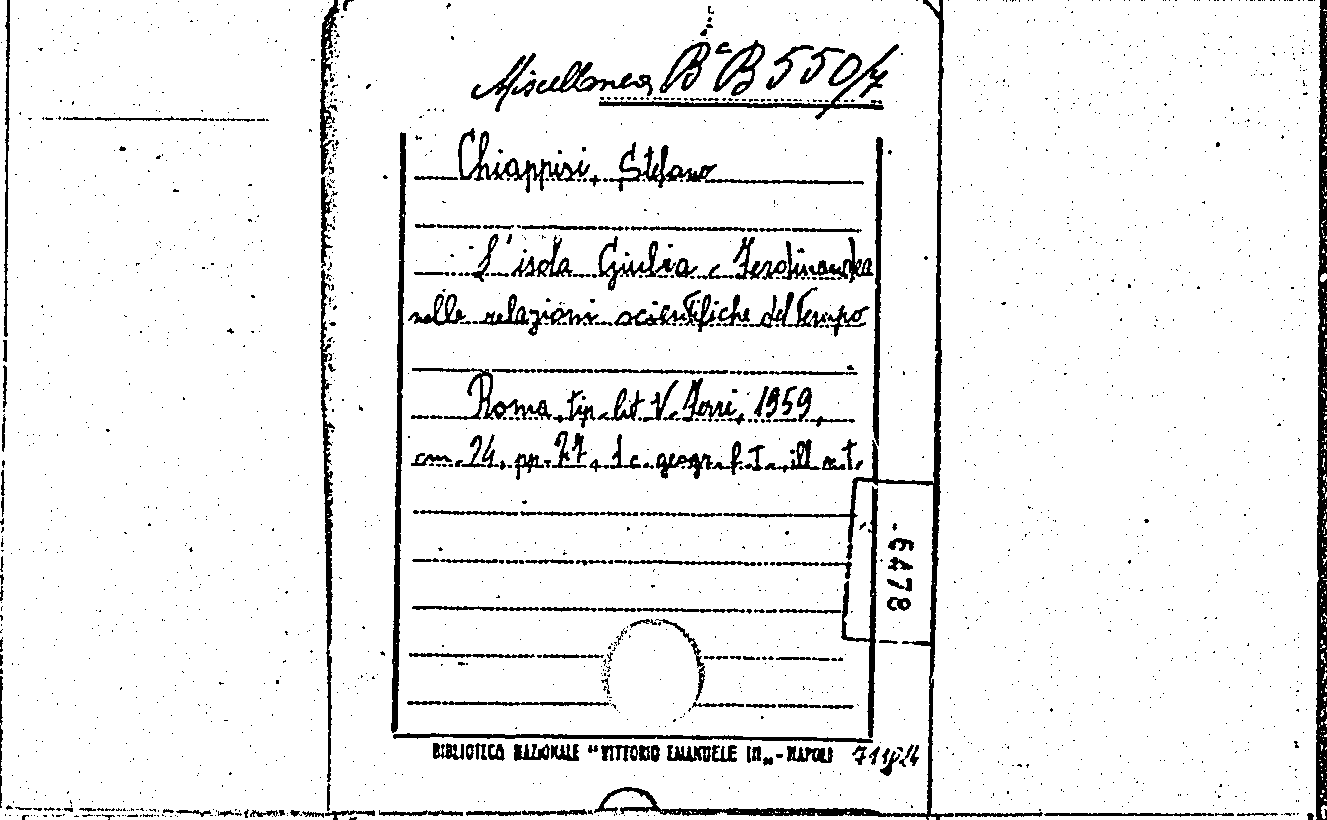 Miscellanea Bª B 550/7
Chiappisi, Stefano
L'isola Giulia e Ferdinandea
nelle relazioni scientifiche del tempo
Roma, tip. lit. V. Ferri, 1959,
cm. 24, pp. 27, 1 c. geogr. f. T., ill. n. t.
6478
BIBLIOTECA NAZIONALE "VITTORIO EMANUELE III„ - NAPOLI